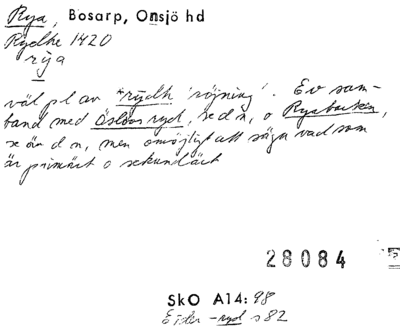 Rya, Bosarp, Onsjö hd
Rydhe 1420
rija
väl pl av *rydh 'röjning'. Ev sam-
band med Öslövs ryd, se d n, o Ryabacken,
se än d n, men omöjligt att säga vad som
är primärt o sekundärt
28084
SkO A14: 98
-ryd s 82